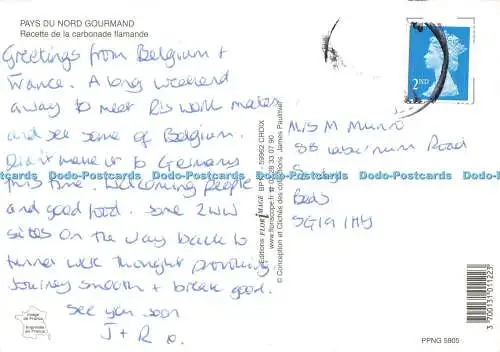 PAYS DU NORD GOURMAND
Recette de la carbonade flamande
Greetings from Belgium +
France. A long weekend
away to meet Ri's work mates
and see some of Belgium.
Didn't make it to Germany
this time. Welcoming people
and good food. Some 2WW
sites on the way back to
tunnel were thought provoking.
Journey smooth + break good.
See you soon
J + R
Editions FLOR'IMAGE BP 59962 CROIX
www.floriscope.fr
© Conception et Clichés des collections James Pauthier
2ND
Miss M Munro
58 Laburnum Road
Beds
SG19 1HY
Image de France
Imprimé en France
3 700131 511227
PPNG 5905
Dodo-Postcards Dodo-Postcards Dodo-Postcards Dodo-Postcards